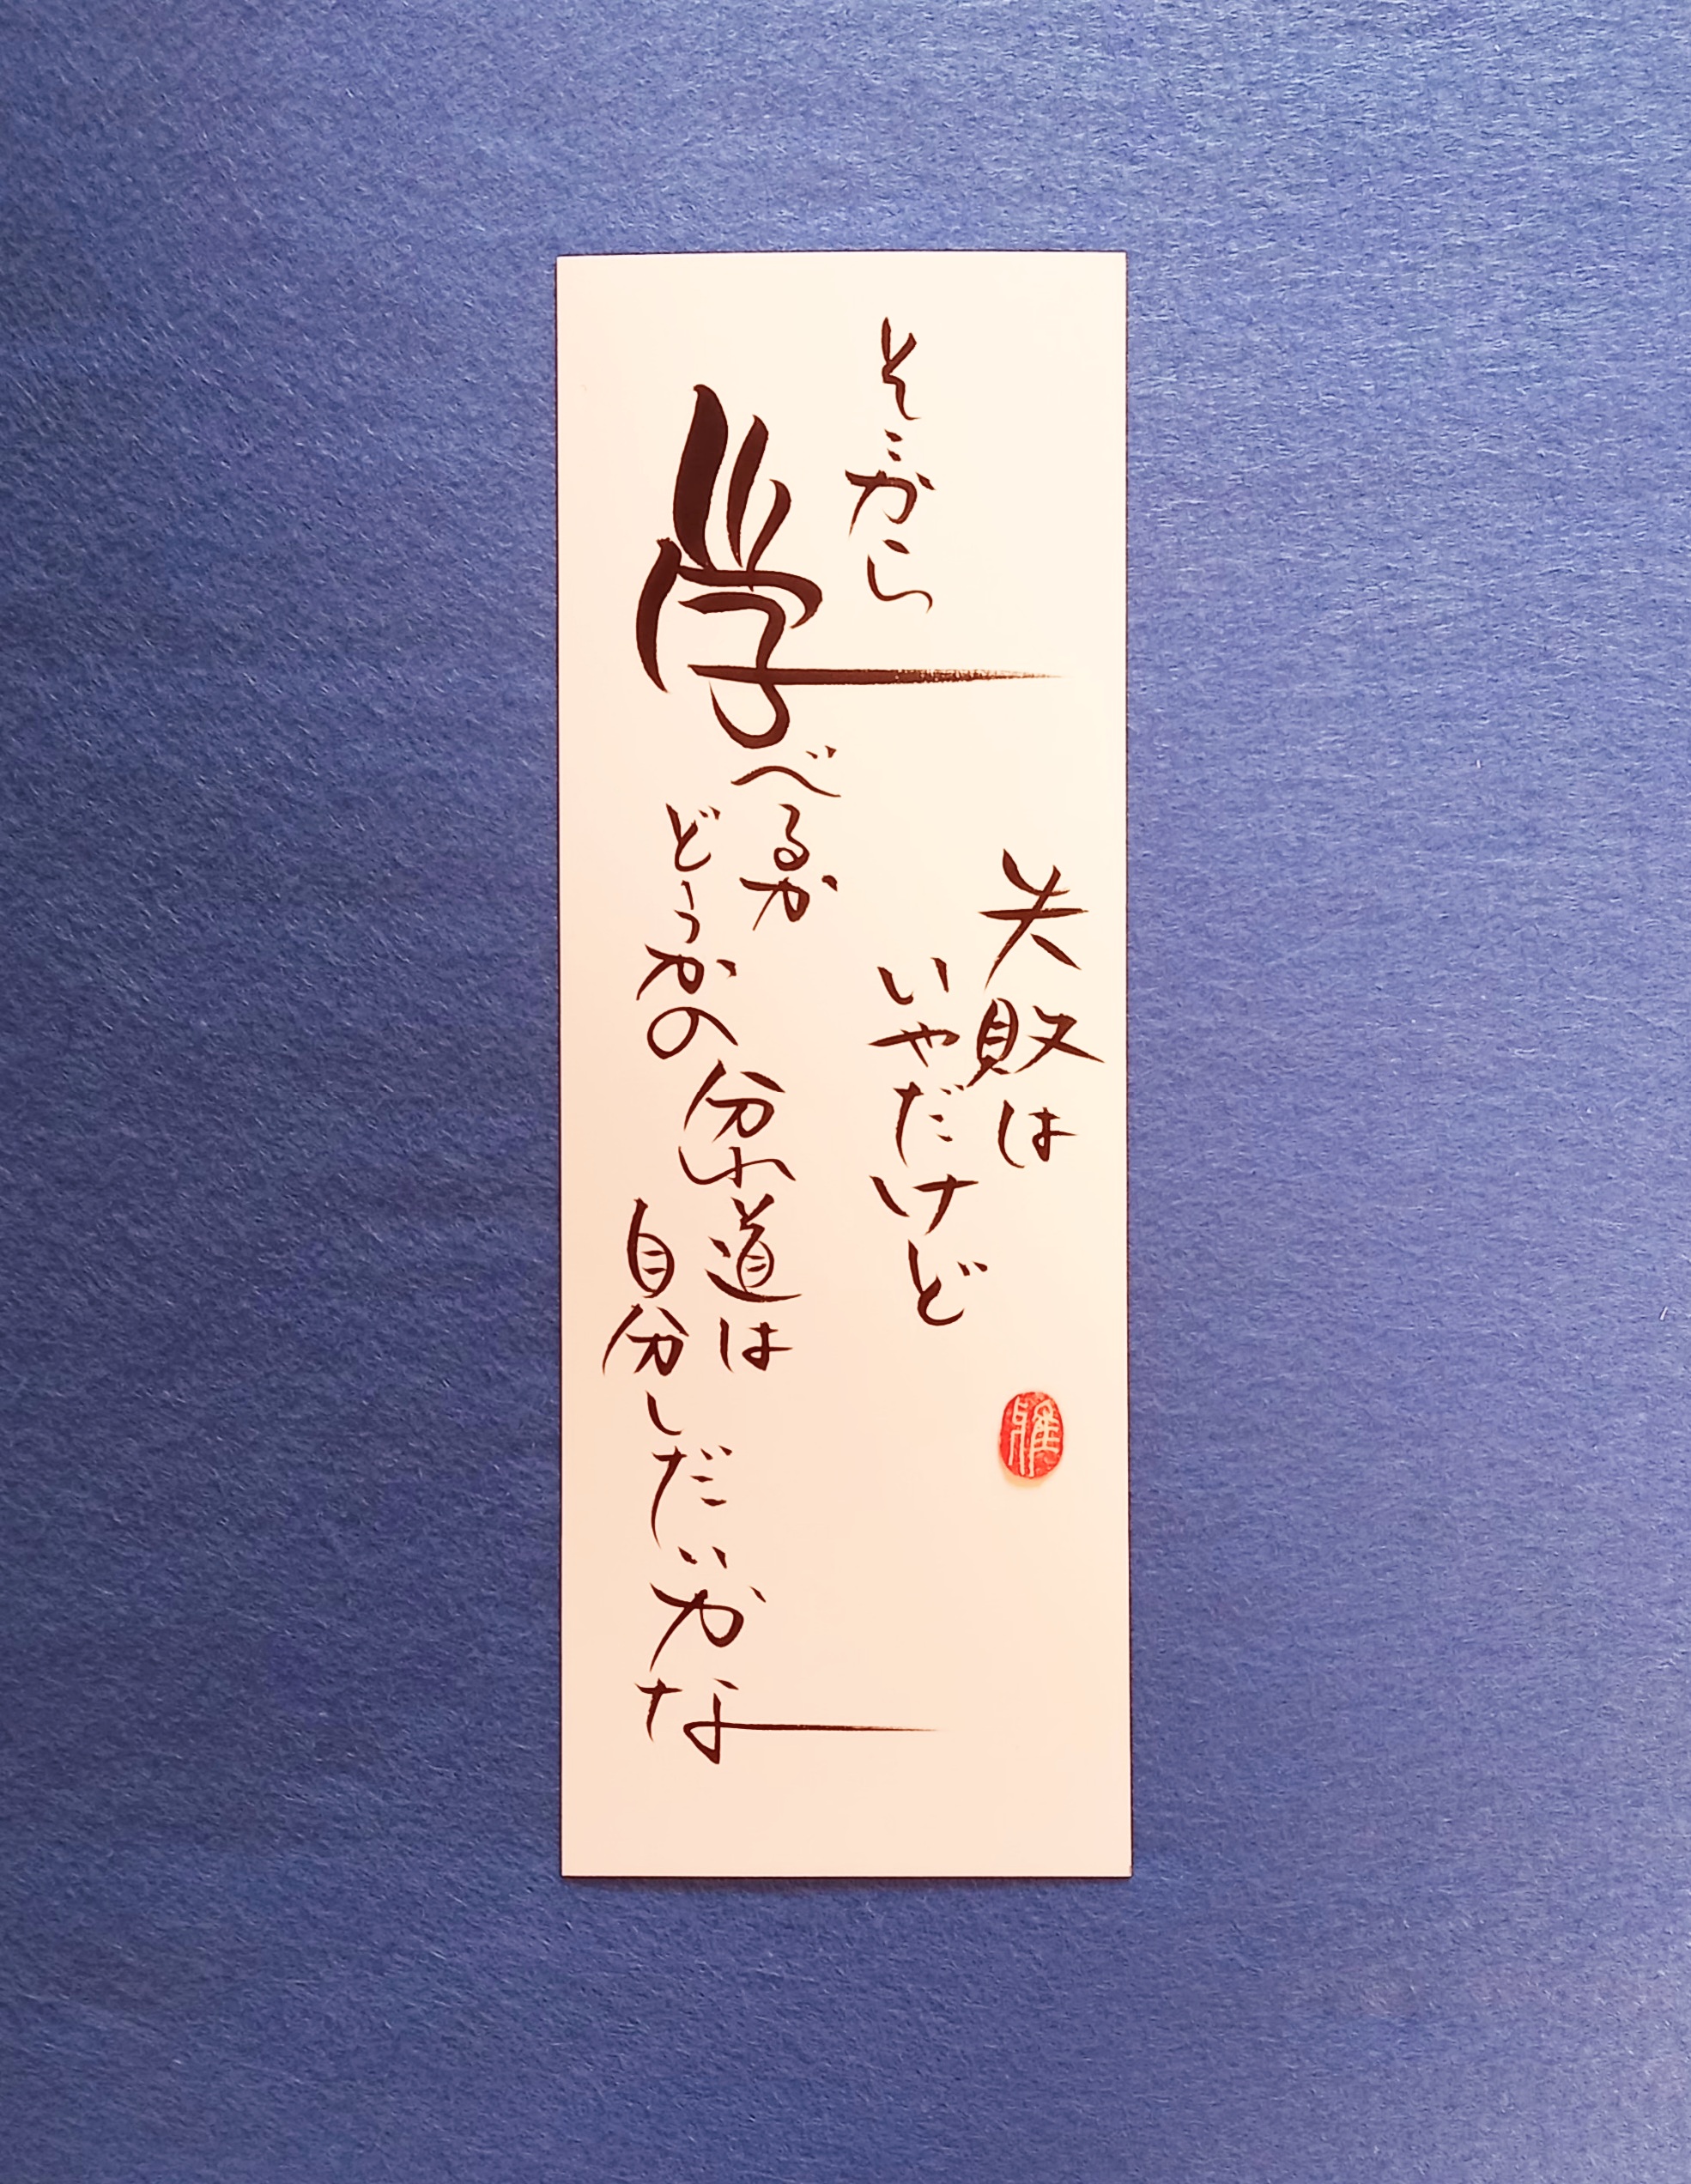 失敗は
いやだけど
そこから
学べるか
どうかの
分れ道は
自分しだいかな
雅